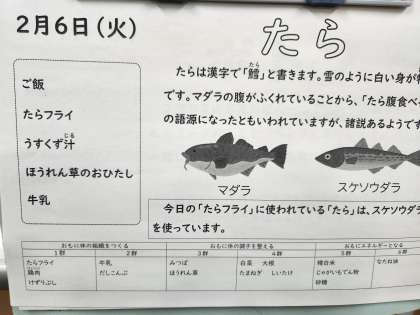 2月6日(火)
たら
ご飯
たらフライ
うすくず汁
じる
ほうれん草のおひたし
牛乳
たらは漢字で「鱈」と書きます。雪のように白い身が
たら
です。マダラの腹がふくれていることから、「たら腹食べ
の語源になったともいわれていますが、諸説あるようです
マダラ
スケソウダラ
今日の「たらフライ」に使われている「たら」は、スケソウダラ
を使っています。
おもに体の組織をつくる
おもに体の調子を整える
おもにエネルギーとなる
1群 2群 3群 4群 5群 6群
たらフライ 牛乳 みつば 白菜 大根 精白米 なたね油
鶏肉 だしこんぶ ほうれん草 たまねぎ しいたけ じゃがいもでん粉
けずりぶし 砂糖